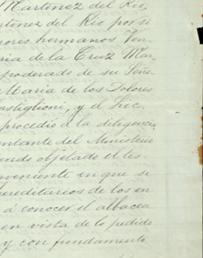 Martinez del Rio,
rtinez del Rio por si
ores hermanos Ven
ria de la Cruz Mar
poderado de su Seño
Maria de los Dolores
astiglioni, y el lic.
procedió á la diligencia
entante del Ministerio
endo objetado el les
veniente en que se
hereditarios de los en
á conocer el albacea
en vista de lo pedido
y con fundamento